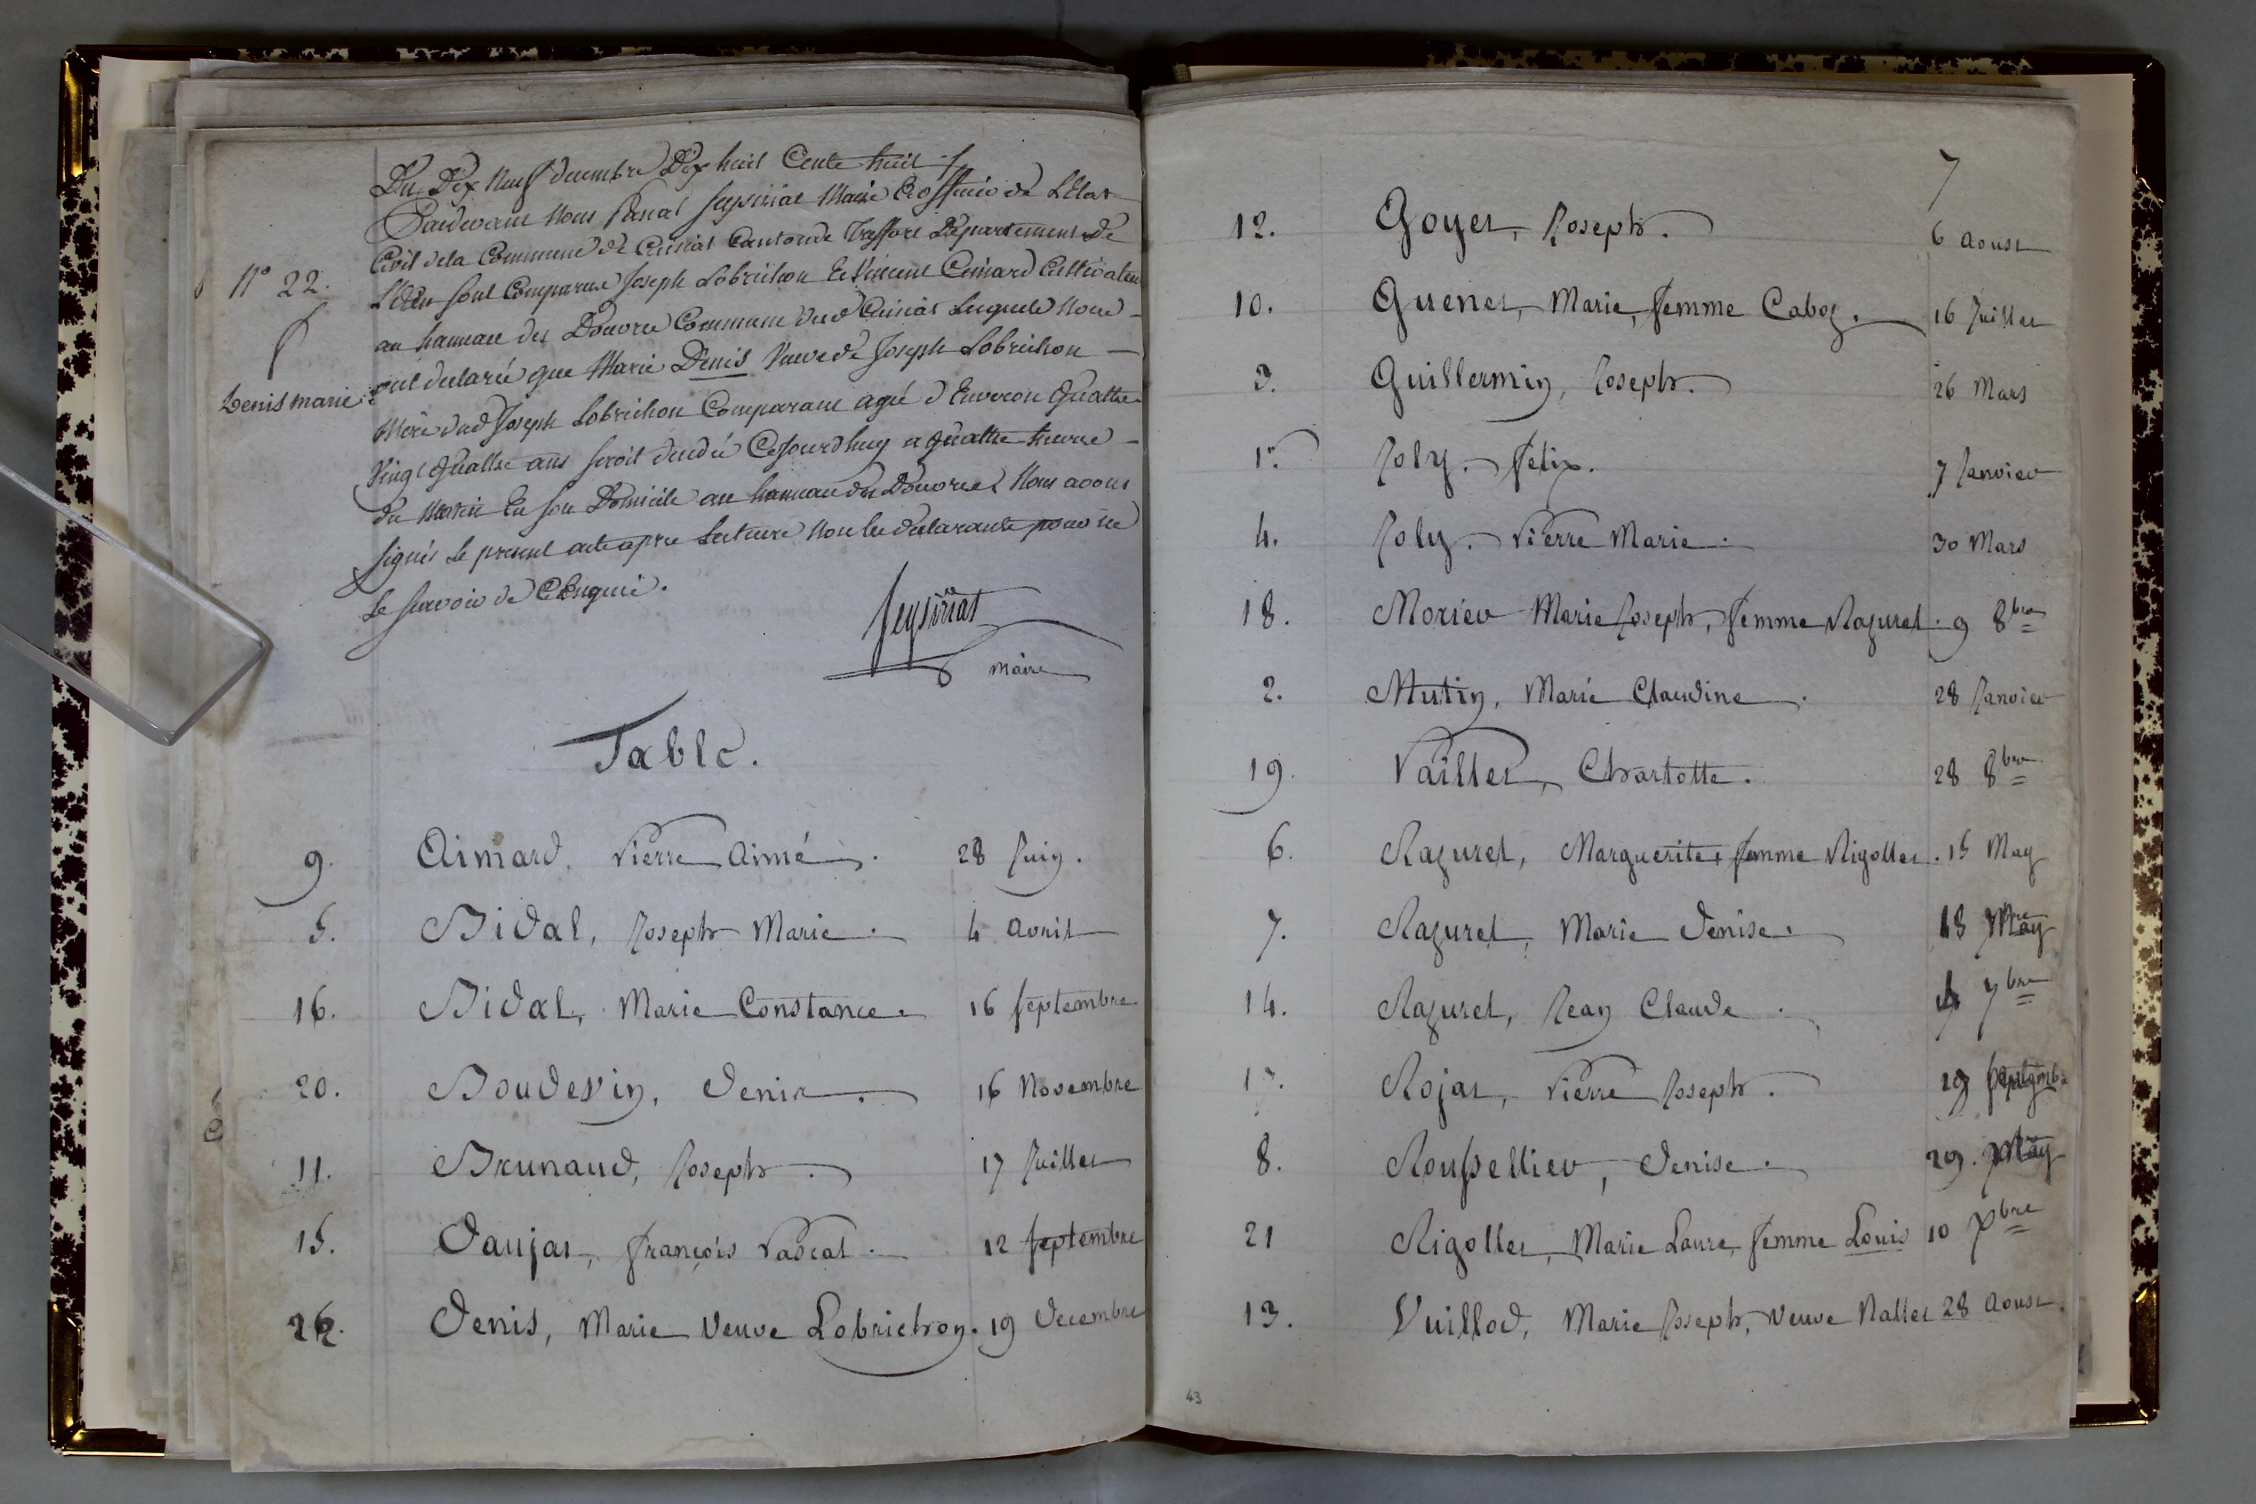 Du Dix Neuf decembre Dix huit Cents huit
Pardevant Nous Pascal feysiriat Maire Et officié de L'Etat
Civil dela Commune de Cuisiat Canton de Treffort Département de
L'Ain sont Comparus Joseph Lobrichon Et Vincent Cuinard Cultivateur
N° 22.
au hameau des Douvres Commune dud Cuisiat Lesquels Nous
ont declaré que Marie Denis Veuve de Joseph Lobrichon
Denis marie
Mère dud Joseph Lobrichon Comparant agé d'Environ Quattre
Vingt quattre ans seroit decédé Cejourdhuy a quattre heures
du Matin En son Domicile au hameau des Douvres Nous avons
signés le present acte apres Lecture Non les declarants pour ne
Le scavoir de Ce Enquis.
feysiriat
maire
Table.
9. Aimard, Pierre Aimé. 28 Juin.
5. Bidal, Joseph Marie. 4 avril
16. Bidal, Marie Constance. 16 septembre
20. Boudevin, Denis. 16 Novembre
11. Brunaud, Joseph. 17 Juillet
15. Daujat, françois Pascal. 12 septembre
22. Denis, Marie Veuve Lobrichon. 19 Decembre
7
12. Goyet, Joseph. 6 aoust
10. Guenet, Marie, femme Caboz. 16 Juillet
3. Guillermin, Joseph. 26 Mars
1er. Joly, felix. 7 Janvier
4. Joly, Pierre Marie. 30 Mars
18. Morier Marie Joseph, femme Razuret. 9 8bre
2. Mutin, Marie Claudine. 28 Janvier
19. Paillet, Charlotte. 28 8bre
6. Razuret, Marguerite, femme Rigollet. 15 May
7. Razuret, Marie Denise. 18 May
14. Razuret, Jean Claude. 7bre
17. Rojat, Pierre Joseph. 29 septembre
8. Rousselier, Denise. 29. May
21 Rigollet, Marie Laure, femme Louis 10 Xbre
13. Vuillod, Marie Joseph, Veuve Nallet 28 aoust.
43